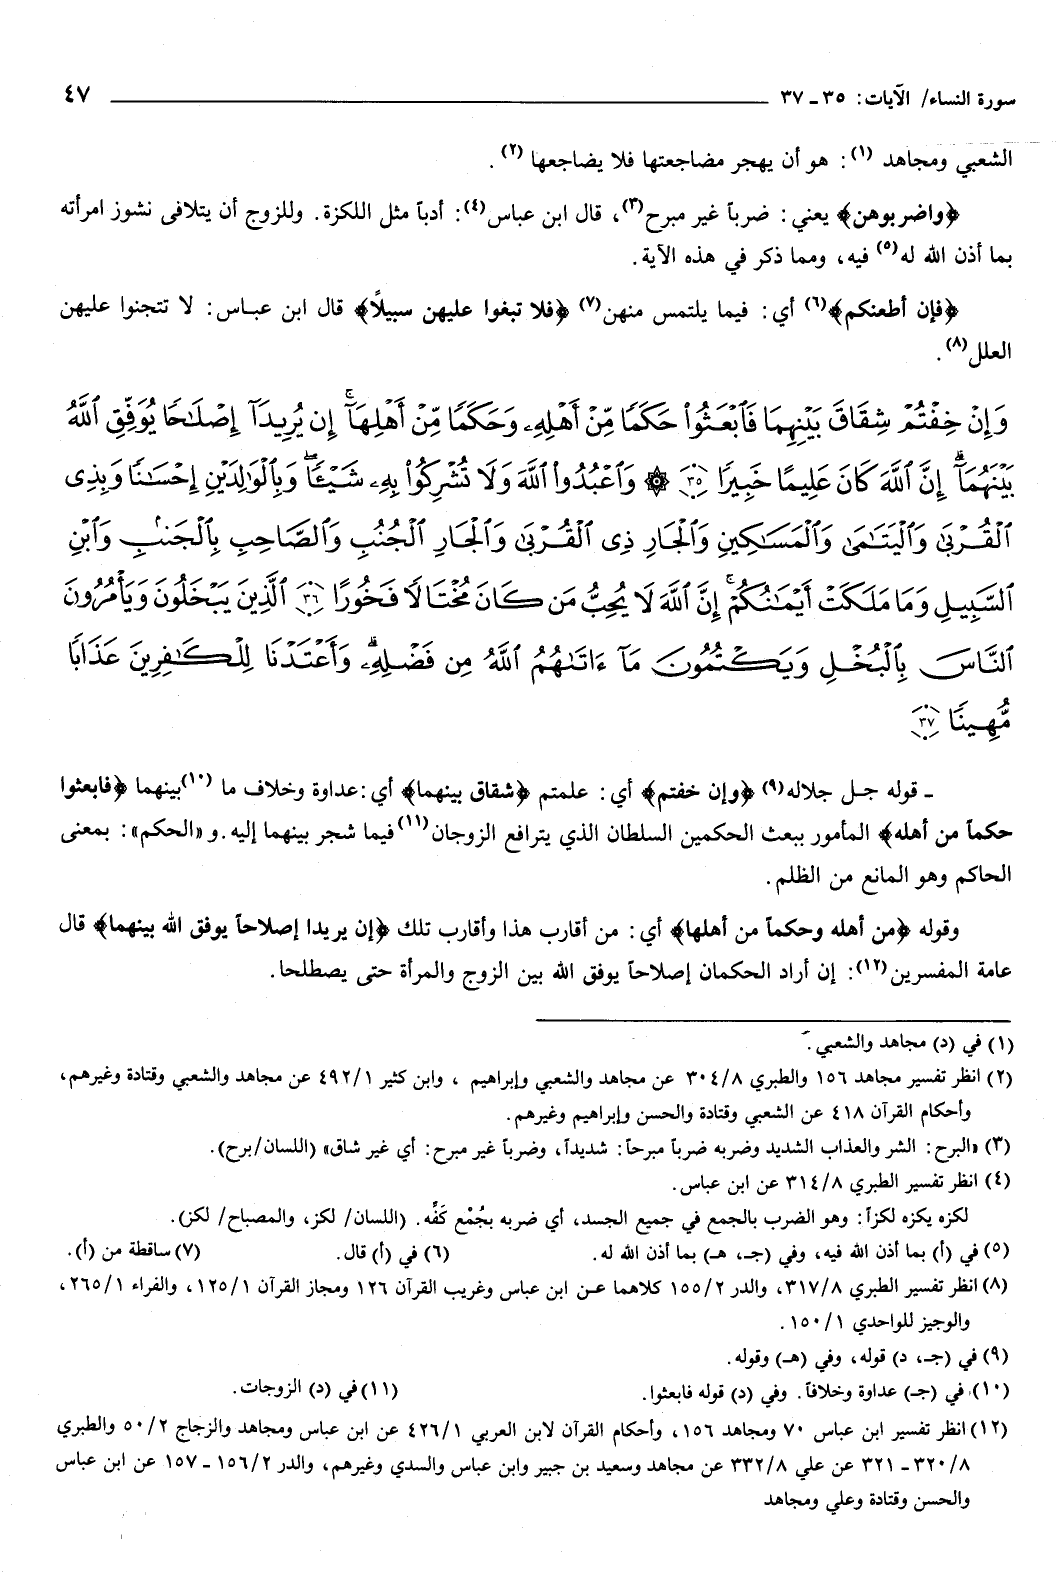 سورة النساء/ الآيات: ٣٥ ـ ٣٧ ٤٧
الشعبي ومجاهد (١): هو أن يهجر مضاجعتها فلا يضاجعها (٢).
﴿واضربوهن﴾ يعني: ضرباً غير مبرح(٣)، قال ابن عباس(٤): أدباً مثل اللكزة. وللزوج أن يتلافى نشوز امرأته
بما أذن الله له(٥) فيه، ومما ذكر في هذه الآية.
﴿فإن أطعنكم﴾(٦) أي: فيما يلتمس منهن(٧) ﴿فلا تبغوا عليهن سبيلاً﴾ قال ابن عباس: لا تتجنوا عليهن
العلل(٨).
وَإِنْ خِفْتُمْ شِقَاقَ بَيْنِهِمَا فَٱبْعَثُوا۟ حَكَمًا مِّنْ أَهْلِهِۦ وَحَكَمًا مِّنْ أَهْلِهَآ ۚ إِن يُرِيدَآ إِصْلَـٰحًا يُوَفِّقِ ٱللَّهُ
بَيْنَهُمَآ ۗ إِنَّ ٱللَّهَ كَانَ عَلِيمًا خَبِيرًا ۝٣٥ ۞ وَٱعْبُدُوا۟ ٱللَّهَ وَلَا تُشْرِكُوا۟ بِهِۦ شَيْـًٔا ۖ وَبِٱلْوَٰلِدَيْنِ إِحْسَـٰنًا وَبِذِى
ٱلْقُرْبَىٰ وَٱلْيَتَـٰمَىٰ وَٱلْمَسَـٰكِينِ وَٱلْجَارِ ذِى ٱلْقُرْبَىٰ وَٱلْجَارِ ٱلْجُنُبِ وَٱلصَّاحِبِ بِٱلْجَنۢبِ وَٱبْنِ
ٱلسَّبِيلِ وَمَا مَلَكَتْ أَيْمَـٰنُكُمْ ۗ إِنَّ ٱللَّهَ لَا يُحِبُّ مَن كَانَ مُخْتَالًا فَخُورًا ۝٣٦ ٱلَّذِينَ يَبْخَلُونَ وَيَأْمُرُونَ
ٱلنَّاسَ بِٱلْبُخْلِ وَيَكْتُمُونَ مَآ ءَاتَىٰهُمُ ٱللَّهُ مِن فَضْلِهِۦ ۗ وَأَعْتَدْنَا لِلْكَـٰفِرِينَ عَذَابًا
مُّهِينًا ۝٣٧
ـ قوله جل جلاله(٩) ﴿وإن خفتم﴾ أي: علمتم ﴿شقاق بينهما﴾ أي: عداوة وخلاف ما (١٠)بينهما ﴿فابعثوا
حكماً من أهله﴾ المأمور ببعث الحكمين السلطان الذي يترافع الزوجان(١١) فيما شجر بينهما إليه. و «الحكم»: بمعنى
الحاكم وهو المانع من الظلم.
وقوله ﴿من أهله وحكماً من أهلها﴾ أي: من أقارب هذا وأقارب تلك ﴿إن يريدا إصلاحاً يوفق الله بينهما﴾ قال
عامة المفسرين(١٢): إن أراد الحكمان إصلاحاً يوفق الله بين الزوج والمرأة حتى يصطلحا.
(١) في (د) مجاهد والشعبي.
(٢) انظر تفسير مجاهد ١٥٦ والطبري ٣٠٤/٨ عن مجاهد والشعبي وإبراهيم ، وابن كثير ٤٩٢/١ عن مجاهد والشعبي وقتادة وغيرهم،
وأحكام القرآن ٤١٨ عن الشعبي وقتادة والحسن وإبراهيم وغيرهم.
(٣) «البرح: الشر والعذاب الشديد وضربه ضرباً مبرحاً: شديداً، وضرباً غير مبرح: أي غير شاق» (اللسان/برح).
(٤) انظر تفسير الطبري ٣١٤/٨ عن ابن عباس.
لكزه يكزه لكزاً: وهو الضرب بالجمع في جميع الجسد، أي ضربه بجُمْع كَفِّه. (اللسان/ لكز، والمصباح/ لكز).
(٥) في (أ) بما أذن الله فيه، وفي (جـ، هـ) بما أذن الله له. (٦) في (أ) قال. (٧) ساقطة من (أ).
(٨) انظر تفسير الطبري ٣١٧/٨، والدر ١٥٥/٢ كلاهما عن ابن عباس وغريب القرآن ١٢٦ ومجاز القرآن ١٢٥/١، والفراء ٢٦٥/١،
والوجيز للواحدي ١٥٠/١.
(٩) في (جـ، د) قوله، وفي (هـ) وقوله.
(١٠) في (جـ) عداوة وخلافاً. وفي (د) قوله فابعثوا. (١١) في (د) الزوجات.
(١٢) انظر تفسير ابن عباس ٧٠ ومجاهد ١٥٦، وأحكام القرآن لابن العربي ٤٢٦/١ عن ابن عباس ومجاهد والزجاج ٥٠/٢ والطبري
٣٢٠/٨ ـ ٣٢١ عن علي ٣٣٢/٨ عن مجاهد وسعيد بن جبير وابن عباس والسدي وغيرهم، والدر ١٥٦/٢ ـ ١٥٧ عن ابن عباس
والحسن وقتادة وعلي ومجاهد